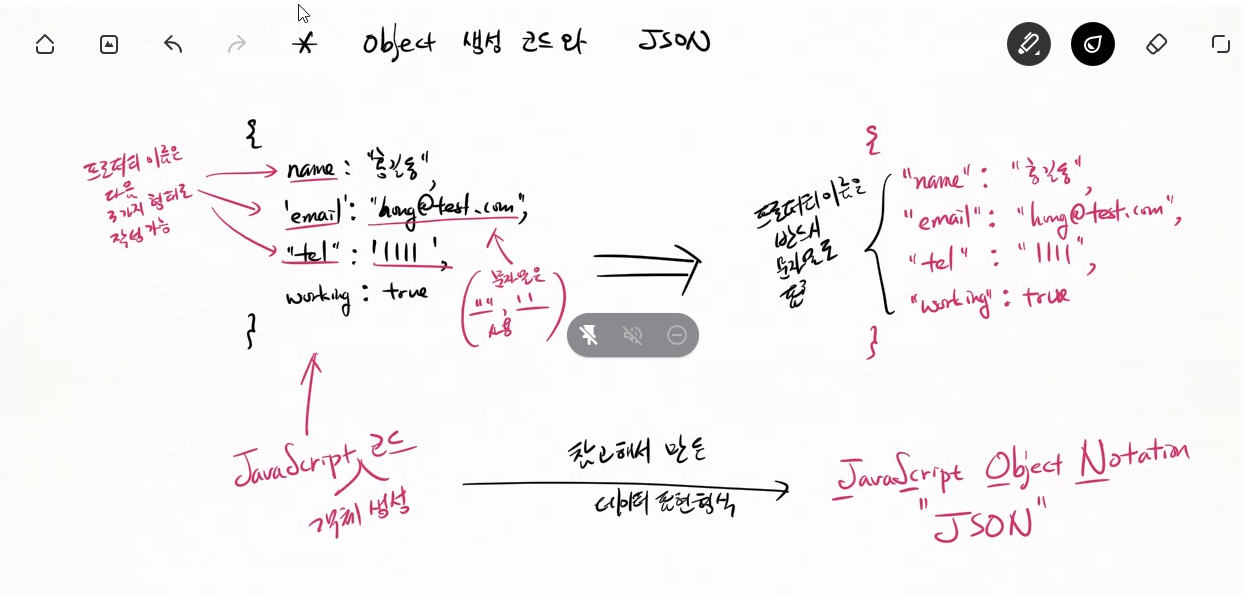 * Object 생성 코드와 JSON
프로퍼티 이름은
다음
3가지 형태로
작성 가능
{
name : "홍길동",
'email' : "hong@test.com",
"tel" : '1111',
working : true
}
문자열은
"", ''
사용
프로퍼티 이름은
반드시
문자열로
표현
{
"name" : "홍길동",
"email" : "hong@test.com",
"tel" : "1111",
"working" : true
}
JavaScript 코드
객체 생성
참고해서 만든
데이터 표현형식
JavaScript Object Notation
"JSON"